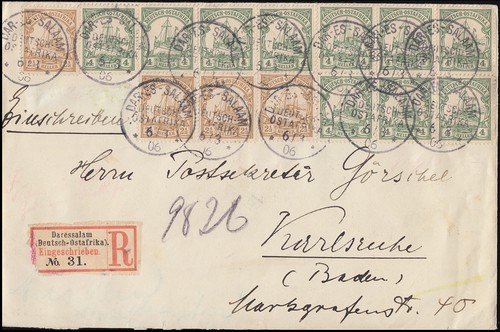 DEUTSCH-OSTAFRIKA
DAR-ES-SALAAM
DEUTSCH-
OSTAFRIKA
6/3
06
2½
4
Einschreiben
Herrn Postsekretär Görschel
9826
Karlsruhe
(Baden)
Markgrafenstr. 40
Daressalam
(Deutsch-Ostafrika).
Eingeschrieben.
No. 31.
R